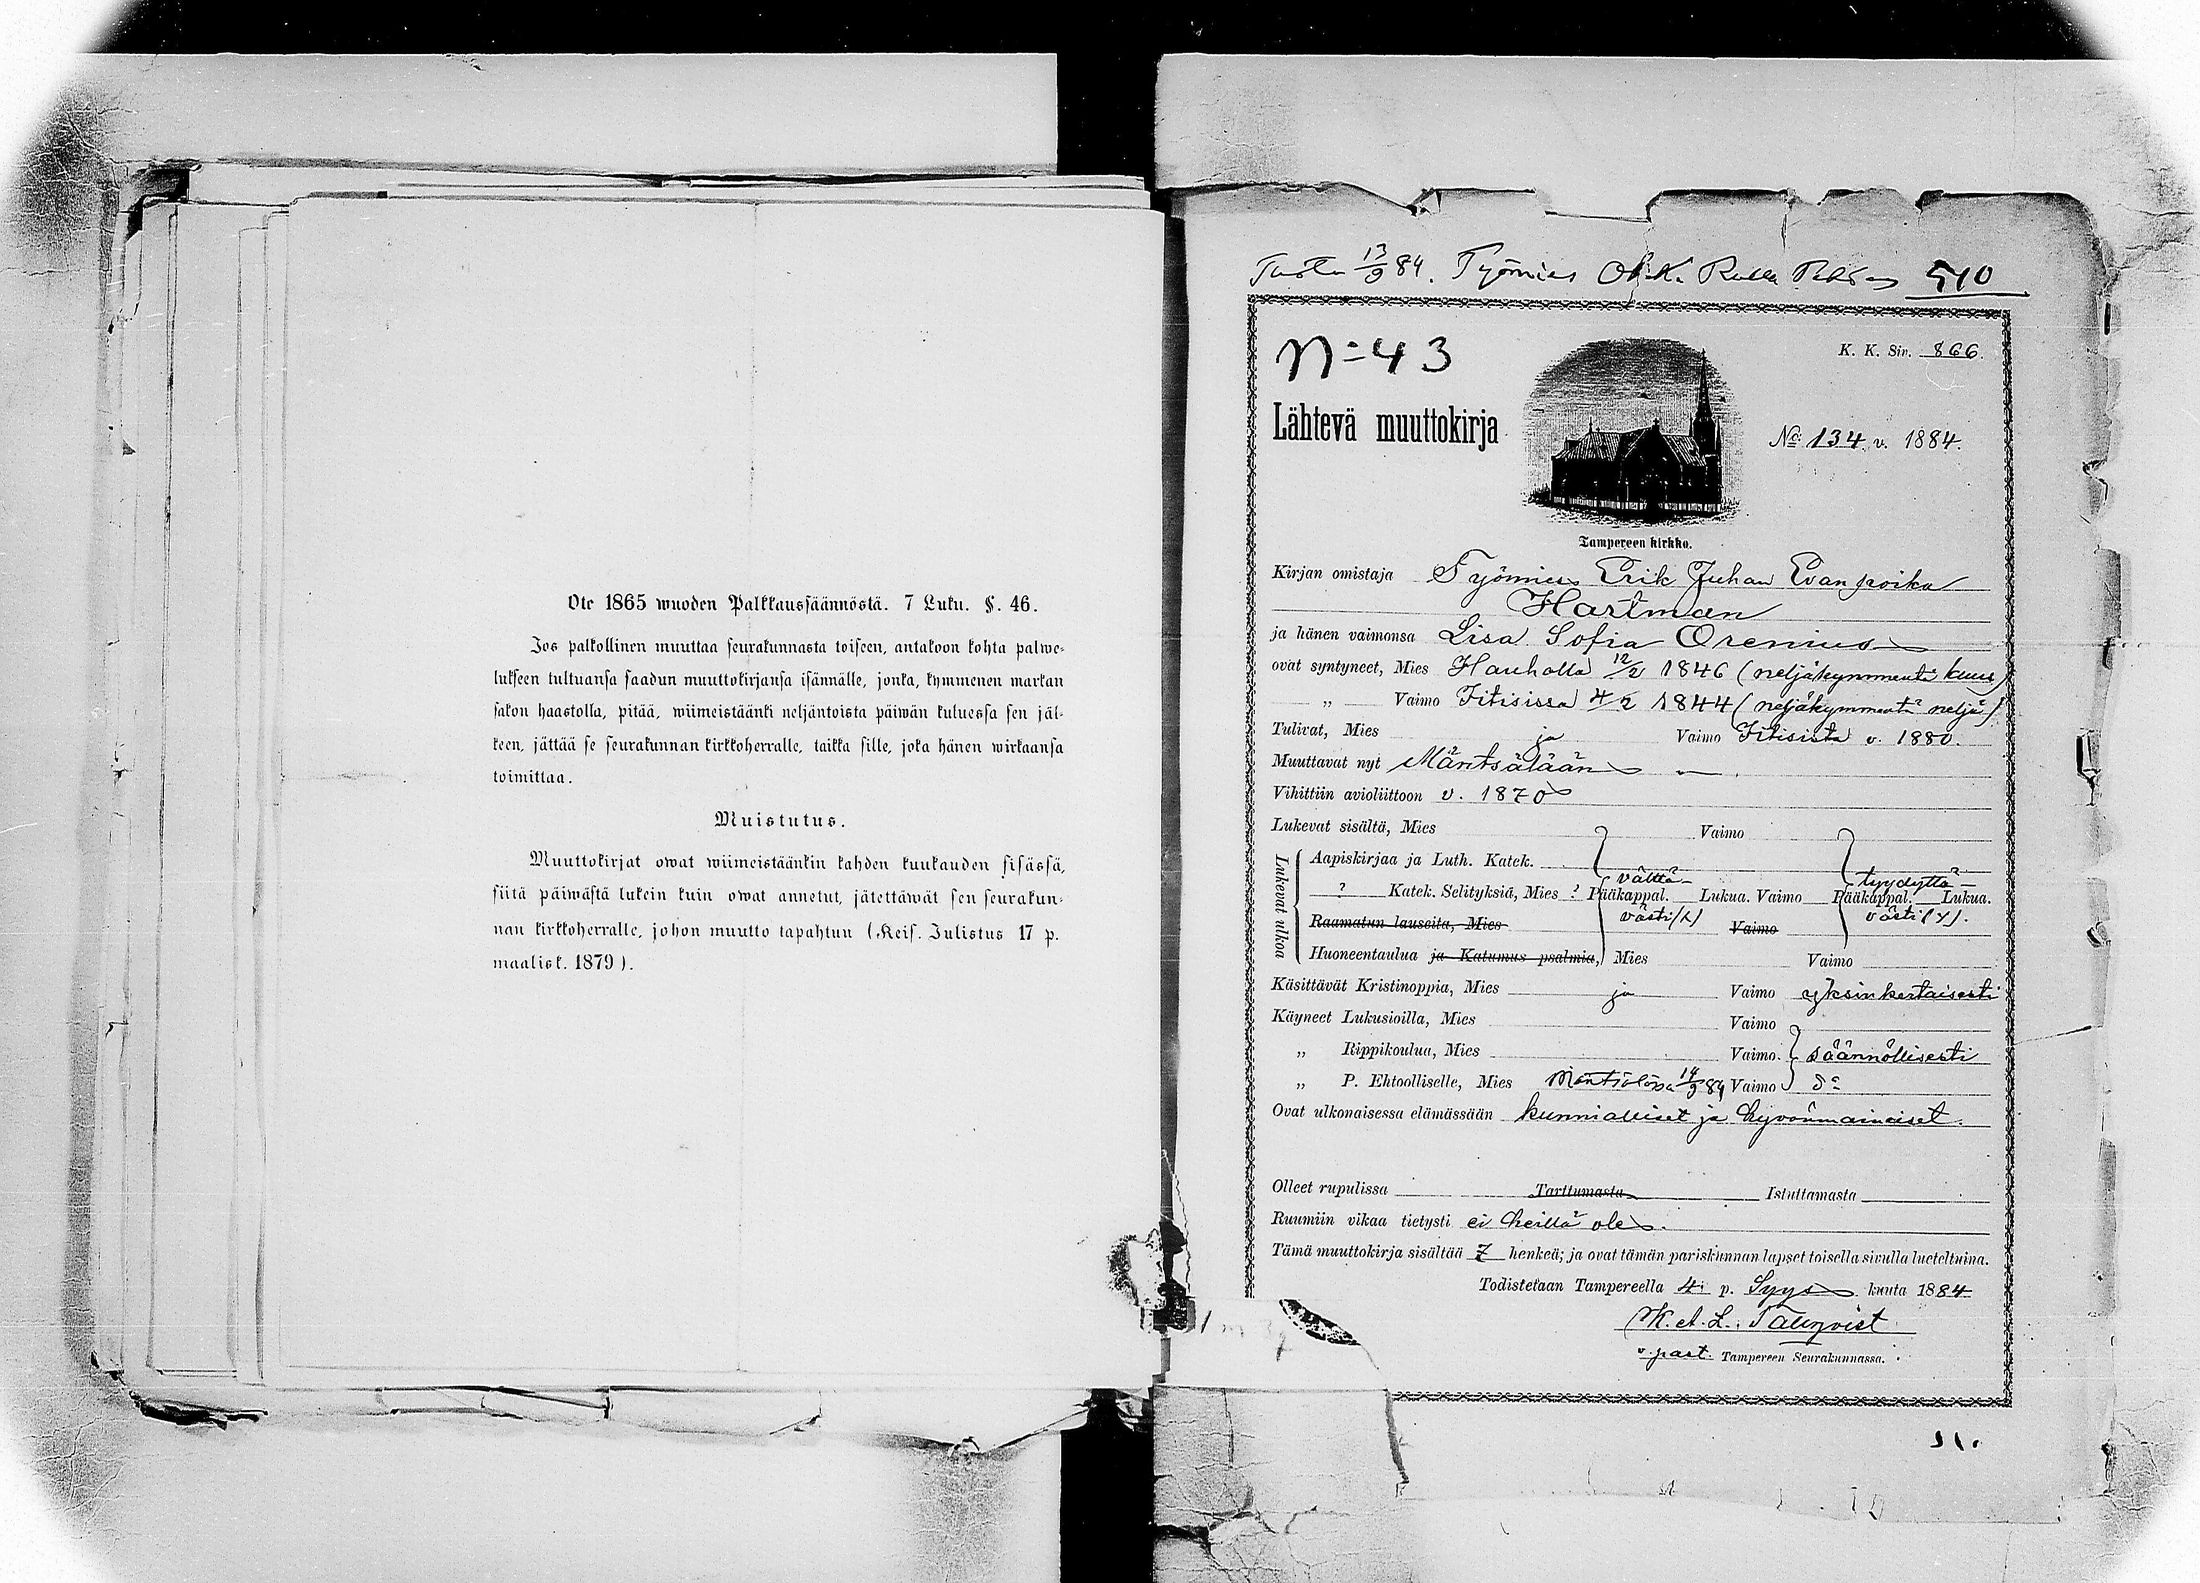 Ote 1865 wuoden Palkkaussäännöstä. 7 Luku. §. 46.
Jos palkollinen muuttaa seurakunnasta toiseen, antakoon kohta palwe-
lukseen tultuansa saadun muuttokirjansa isännälle, jonka, kymmenen markan
sakon haastolla, pitää, wiimeistäänki neljäntoista päiwän kuluessa sen jäl-
keen, jättää se seurakunnan kirkkoherralle, taikka sille, joka hänen wirkaansa
toimittaa.
Muistutus.
Muuttokirjat owat wiimeistäänkin kahden kuukauden sisässä,
siitä päiwästä lukein kuin owat annetut, jätettäwät sen seurakun-
nan kirkkoherralle, johon muutto tapahtuu (Keis. Julistus 17 p.
maalisk. 1879).
13/9 84. Työmies 510
N=43
K. K. Siv. 866.
Lähtevä muuttokirja
No: 134 v. 1884.
Tampereen kirkko.
Kirjan omistaja Työmies Erik Juhan Evanpoika
Hartman
ja hänen vaimonsa Lisa Sofia Orenius
ovat syntyneet, Mies Hauholla 12/2 1846 (neljäkymmentä kuus)
„ Vaimo Iitisissä 4/2 1844 (neljäkymmentä neljä)
Tulivat, Mies ja Vaimo Iitisistä v. 1880.
Muuttavat nyt Mäntsälään
Vihittiin avioliittoon v. 1870
Lukevat sisältä, Mies Vaimo
Lukevat ulkoa
Aapiskirjaa ja Luth. Katek.
välttä- tyydyttä-
? Katek. Selityksiä, Mies ? Pääkappal. Lukua. Vaimo Pääkappal. Lukua.
västi(x) västi(x).
Raamatun lauseita, Mies Vaimo
Huoneentaulua ja Katumus psalmia, Mies Vaimo
Käsittävät Kristinoppia, Mies ja Vaimo yksinkertaisesti
Käyneet Lukusioilla, Mies Vaimo
„ Rippikoulua, Mies Vaimo säännöllisesti
„ P. Ehtoolliselle, Mies Mäntsälässä 14/9 84 Vaimo do
Ovat ulkonaisessa elämässään kunnialliset ja hyvänmainciset.
Olleet rupulissa Tarttumasta Istuttamasta
Ruumiin vikaa tietysti ei heillä ole.
Tämä muuttokirja sisältää 7 henkeä; ja ovat tämän pariskunnan lapset toisella sivulla lueteltuina.
Todistetaan Tampereella 4: p. Syys kuuta 1884
K. A. L. Talqvist
v. past. Tampereen Seurakunnassa.